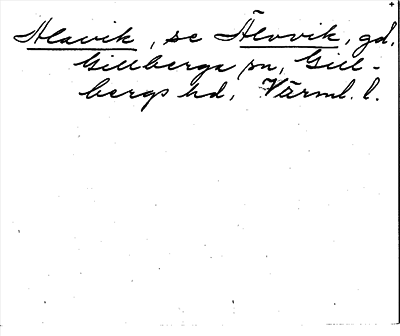 Alavik, se Älvvik, gd,
Gillberga sn, Gill-
bergs hd, Värml. l.